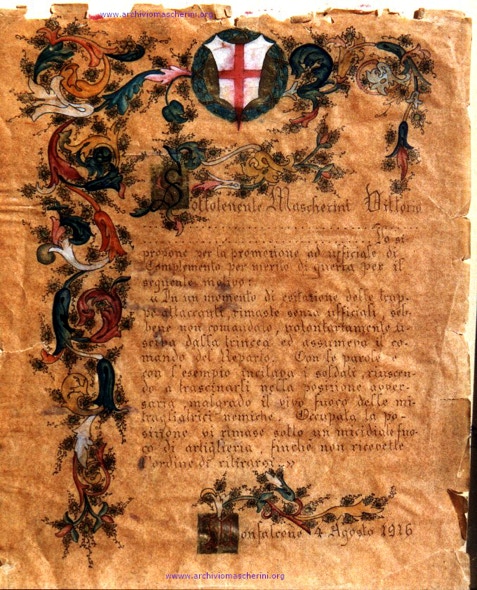 www.archiviomascherini.org
Sottotenente Mascherini Vittorio
Lo si
propone per la promozione ad ufficiale di
Complemento per merito di guerra per il
seguente motivo:
"In un momento di esitazione delle trup-
pe attaccanti, rimaste senza ufficiali, seb-
bene non comandato, volontariamente u-
sciva dalla trincea ed assumeva il co-
mando del Reparto. Con le parole e
con l'esempio incitava i soldati, riuscen-
do a trascinarli nella posizione avver-
saria, malgrado il vivo fuoco delle mi-
tragliatrici nemiche. Occupata la po-
sizione vi rimase sotto un micidiale fuo-
co di artiglieria, finche non ricevette
l'ordine di ritirarsi.»
Monfalcone 4 Agosto 1916
www.archiviomascherini.org